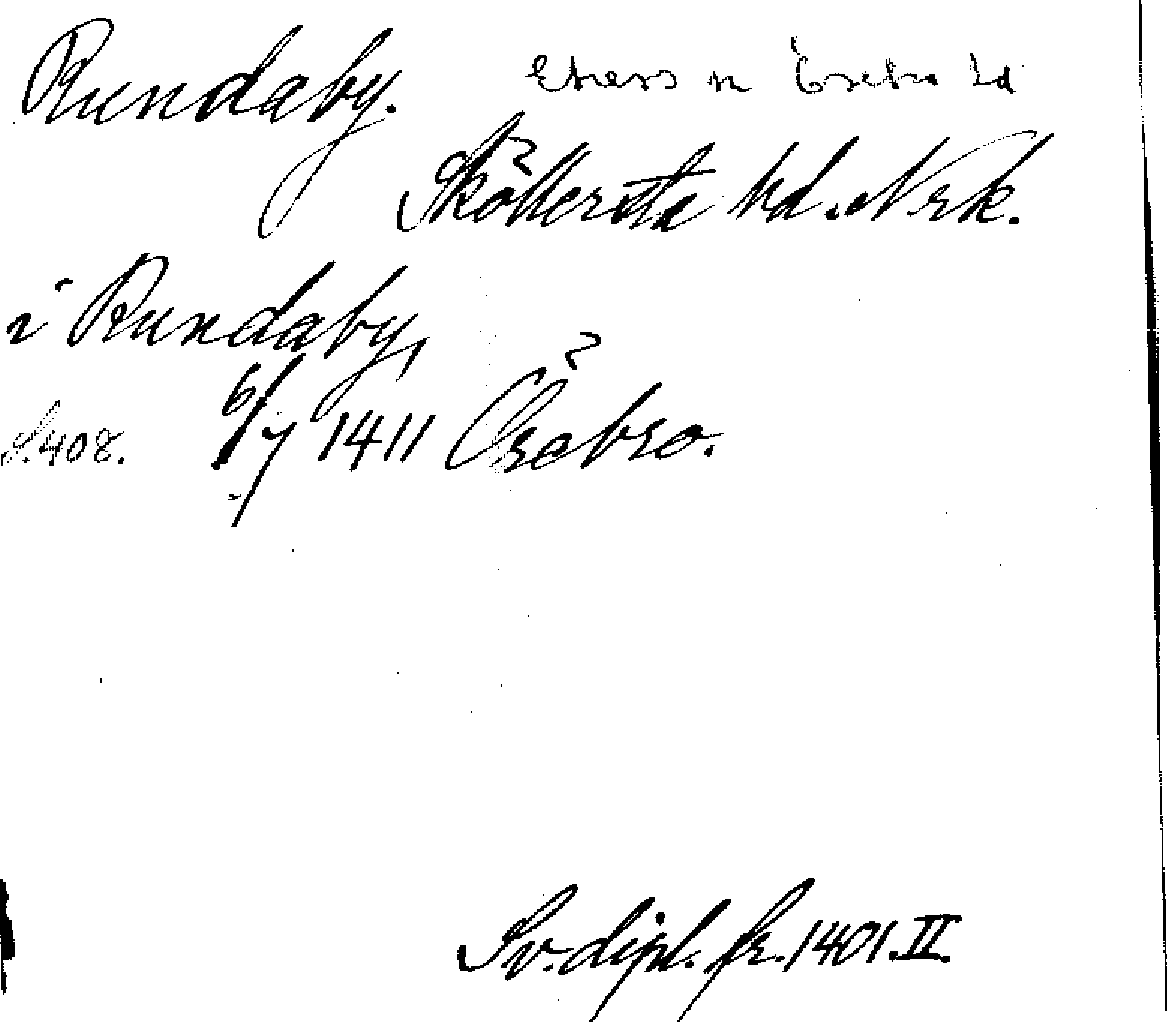 Rundaby. Ekers sn Örebro hd
Sköllersta hd. Nrk.
i Rundaby,
S. 408. 6/7 1411 Örebro.
Sv. dipl. fr. 1401. II.